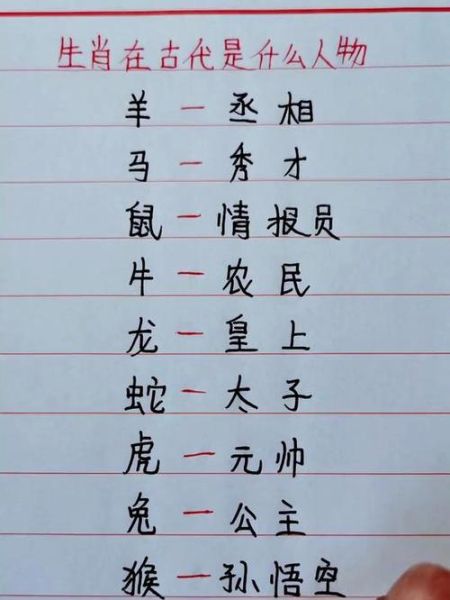 生肖在古代是什么人物
羊一丞相
马一秀才
鼠一情报员
牛一农民
龙一皇上
蛇一太子
虎一元帅
兔一公主
猴一孙悟空